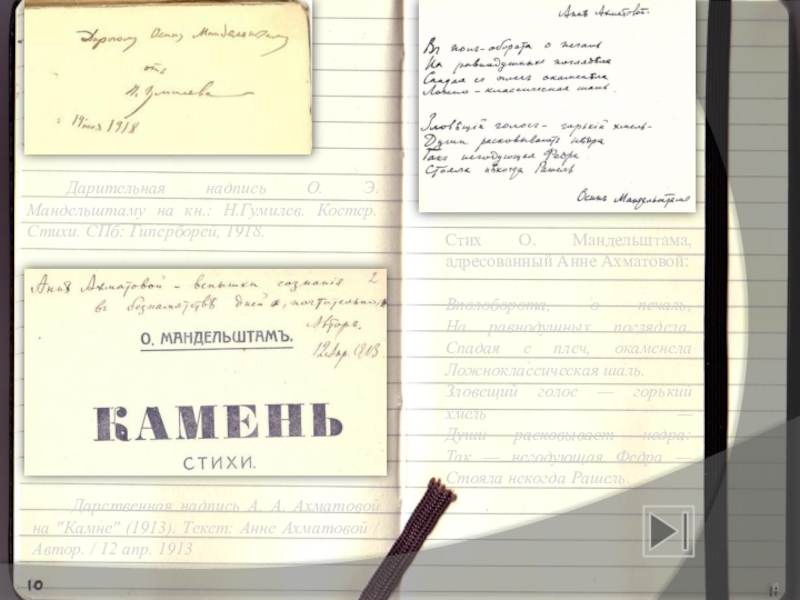 Дорогому Осипу Мандельштаму
отъ
Н. Гумилева
1918
Дарительная надпись О. Э.
Мандельштаму на кн.: Н.Гумилев. Костер.
Стихи. СПб: Гиперборей, 1918.
Аннѣ Ахматовой – вспышки сознанія 2
въ безпамятствѣ дней, почтительно
Авторъ.
12 Апр. 1913
О. МАНДЕЛЬШТАМЪ.
КАМЕНЬ
СТИХИ.
Дарственная надпись А. А. Ахматовой
на "Камне" (1913). Текст: Анне Ахматовой /
Автор. / 12 апр. 1913
10
Аннѣ Ахматовой.
Въ полъ-оборота о печаль
На равнодушныхъ поглядѣла
Спадая съ плечъ окаменѣла
Ложно-классическая шаль.
Зловѣщій голосъ – горькій хмель –
Души расковываетъ нѣдра
Такъ негодующая Федра
Стояла нѣкогда Рашель
Осипъ Мандельштамъ
Стих О. Мандельштама,
адресованный Анне Ахматовой:
Вполоборота, о печаль,
На равнодушных поглядела.
Спадая с плеч, окаменела
Ложноклассическая шаль.
Зловещий голос — горький
хмель —
Души расковывает недра:
Так — негодующая Федра —
Стояла некогда Рашель.